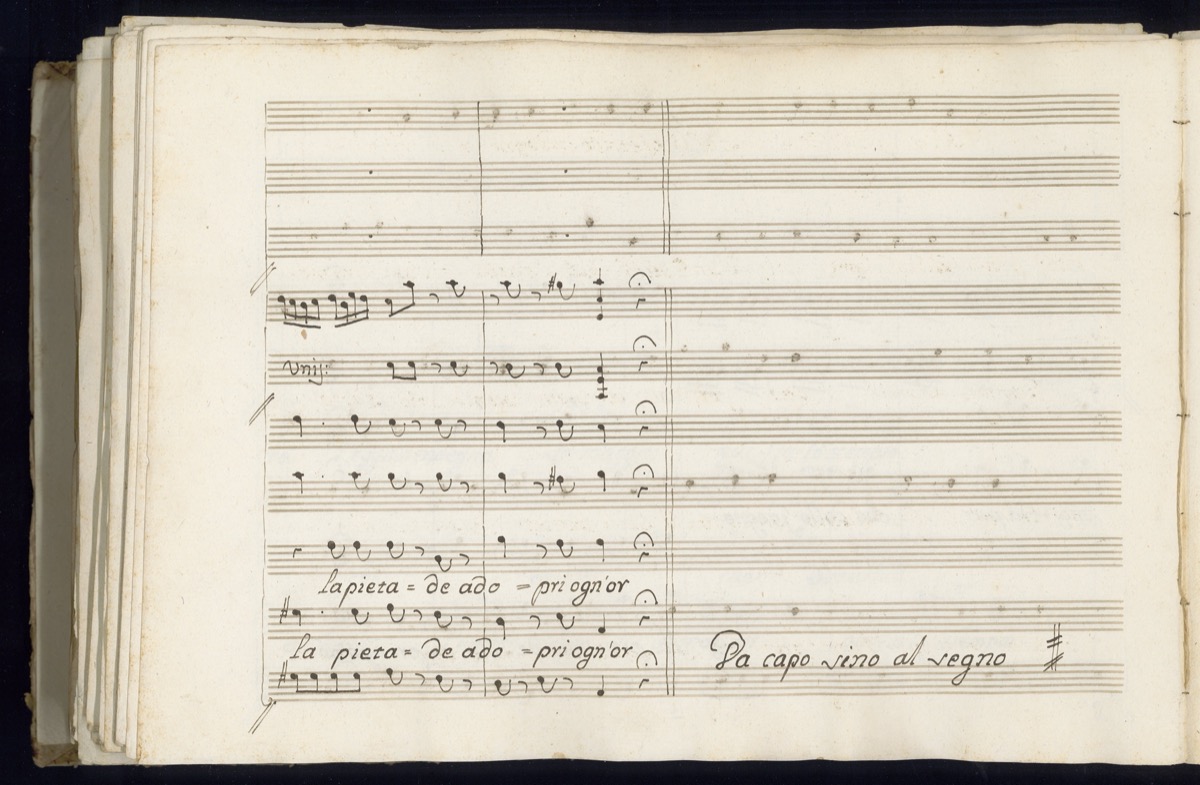 Unis:
la pieta = de ado = pri ogn'or
la pieta = de ado = pri ogn'or
Da capo sino al segno